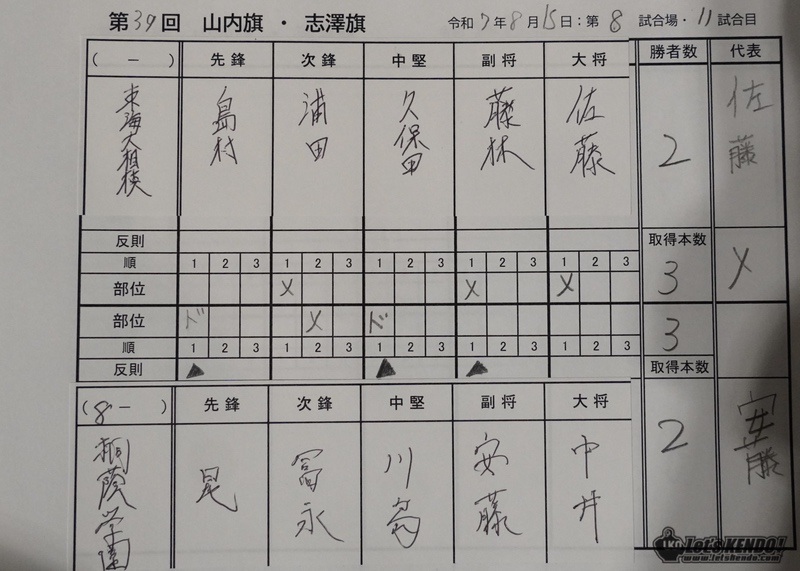 第39回 山内旗・志澤旗 令和7年8月15日:第8試合場・11試合目
( ー ) 先鋒 次鋒 中堅 副将 大将 勝者数 代表
東海大相模 島村 浦田 久保田 藤林 佐藤 2 佐藤
反則 取得本数
順 1 2 3 1 2 3 1 2 3 1 2 3 1 2 3
部位 メ メ メ 3 メ
部位 ド メ ド 3
順 1 2 3 1 2 3 1 2 3 1 2 3 1 2 3
反則 ▲ ▲ ▲ 取得本数
(8ー ) 先鋒 次鋒 中堅 副将 大将
桐蔭学園 冨永 川島 安藤 中井 2 安藤
LKD Let's KENDO!
www.letskendo.com